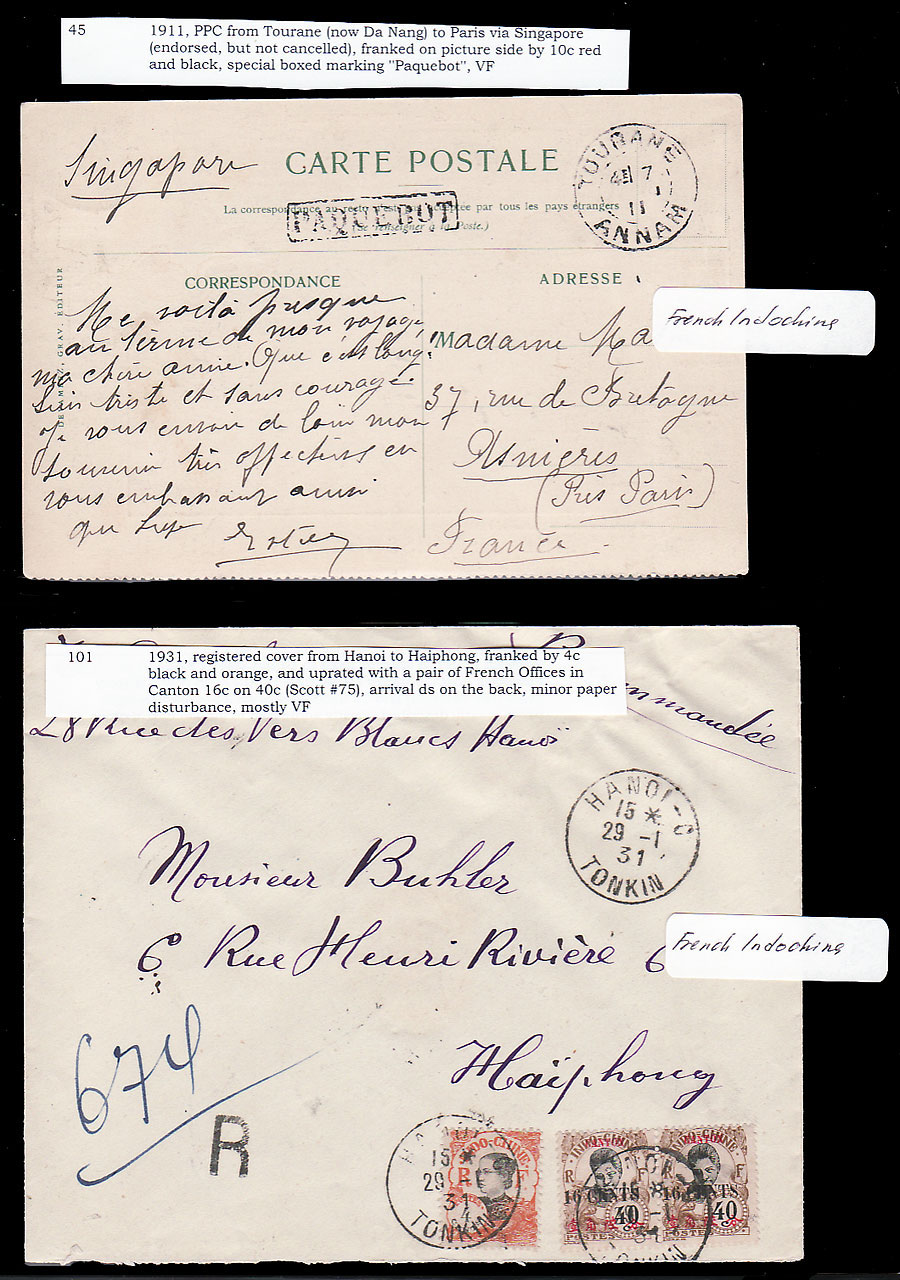 45 1911, PPC from Tourane (now Da Nang) to Paris via Singapore
(endorsed, but not cancelled), franked on picture side by 10c red
and black, special boxed marking "Paquebot", VF
Singapore
CARTE POSTALE
TOURANE
7
11
ANNAM
La correspondance au recto n'est pas acceptée par tous les pays étrangers
(Se renseigner à la Poste.)
PAQUEBOT
GRAV. ÉDITEUR
CORRESPONDANCE
Me voilà presque
au terme de mon voyage
ma chère amie. Que c'est long!
Suis triste et sans courage.
Je vous envoie de loin mon
souvenir très affectueux en
vous embrassant ainsi
que
ADRESSE
French Indochina
Madame Ma
37, rue de Bretagne
Asnières
(Près Paris)
France
101 1931, registered cover from Hanoi to Haiphong, franked by 4c
black and orange, and uprated with a pair of French Offices in
Canton 16c on 40c (Scott #75), arrival ds on the back, minor paper
disturbance, mostly VF
mmandée
28 Rue des Vers Blancs Hanoï
HANOI-C
15 *
29 -1
31
TONKIN
Monsieur Buhler
6 Rue Henri Rivière 6
French Indochina
Haïphong
674
R
15 *
29 -1
31
TONKIN
INDO-CHINE
R F
4
INDO-CHINE
R F
16 CENTS
40
POSTES
INDO-CHINE
F
16 CENTS
40
POSTES